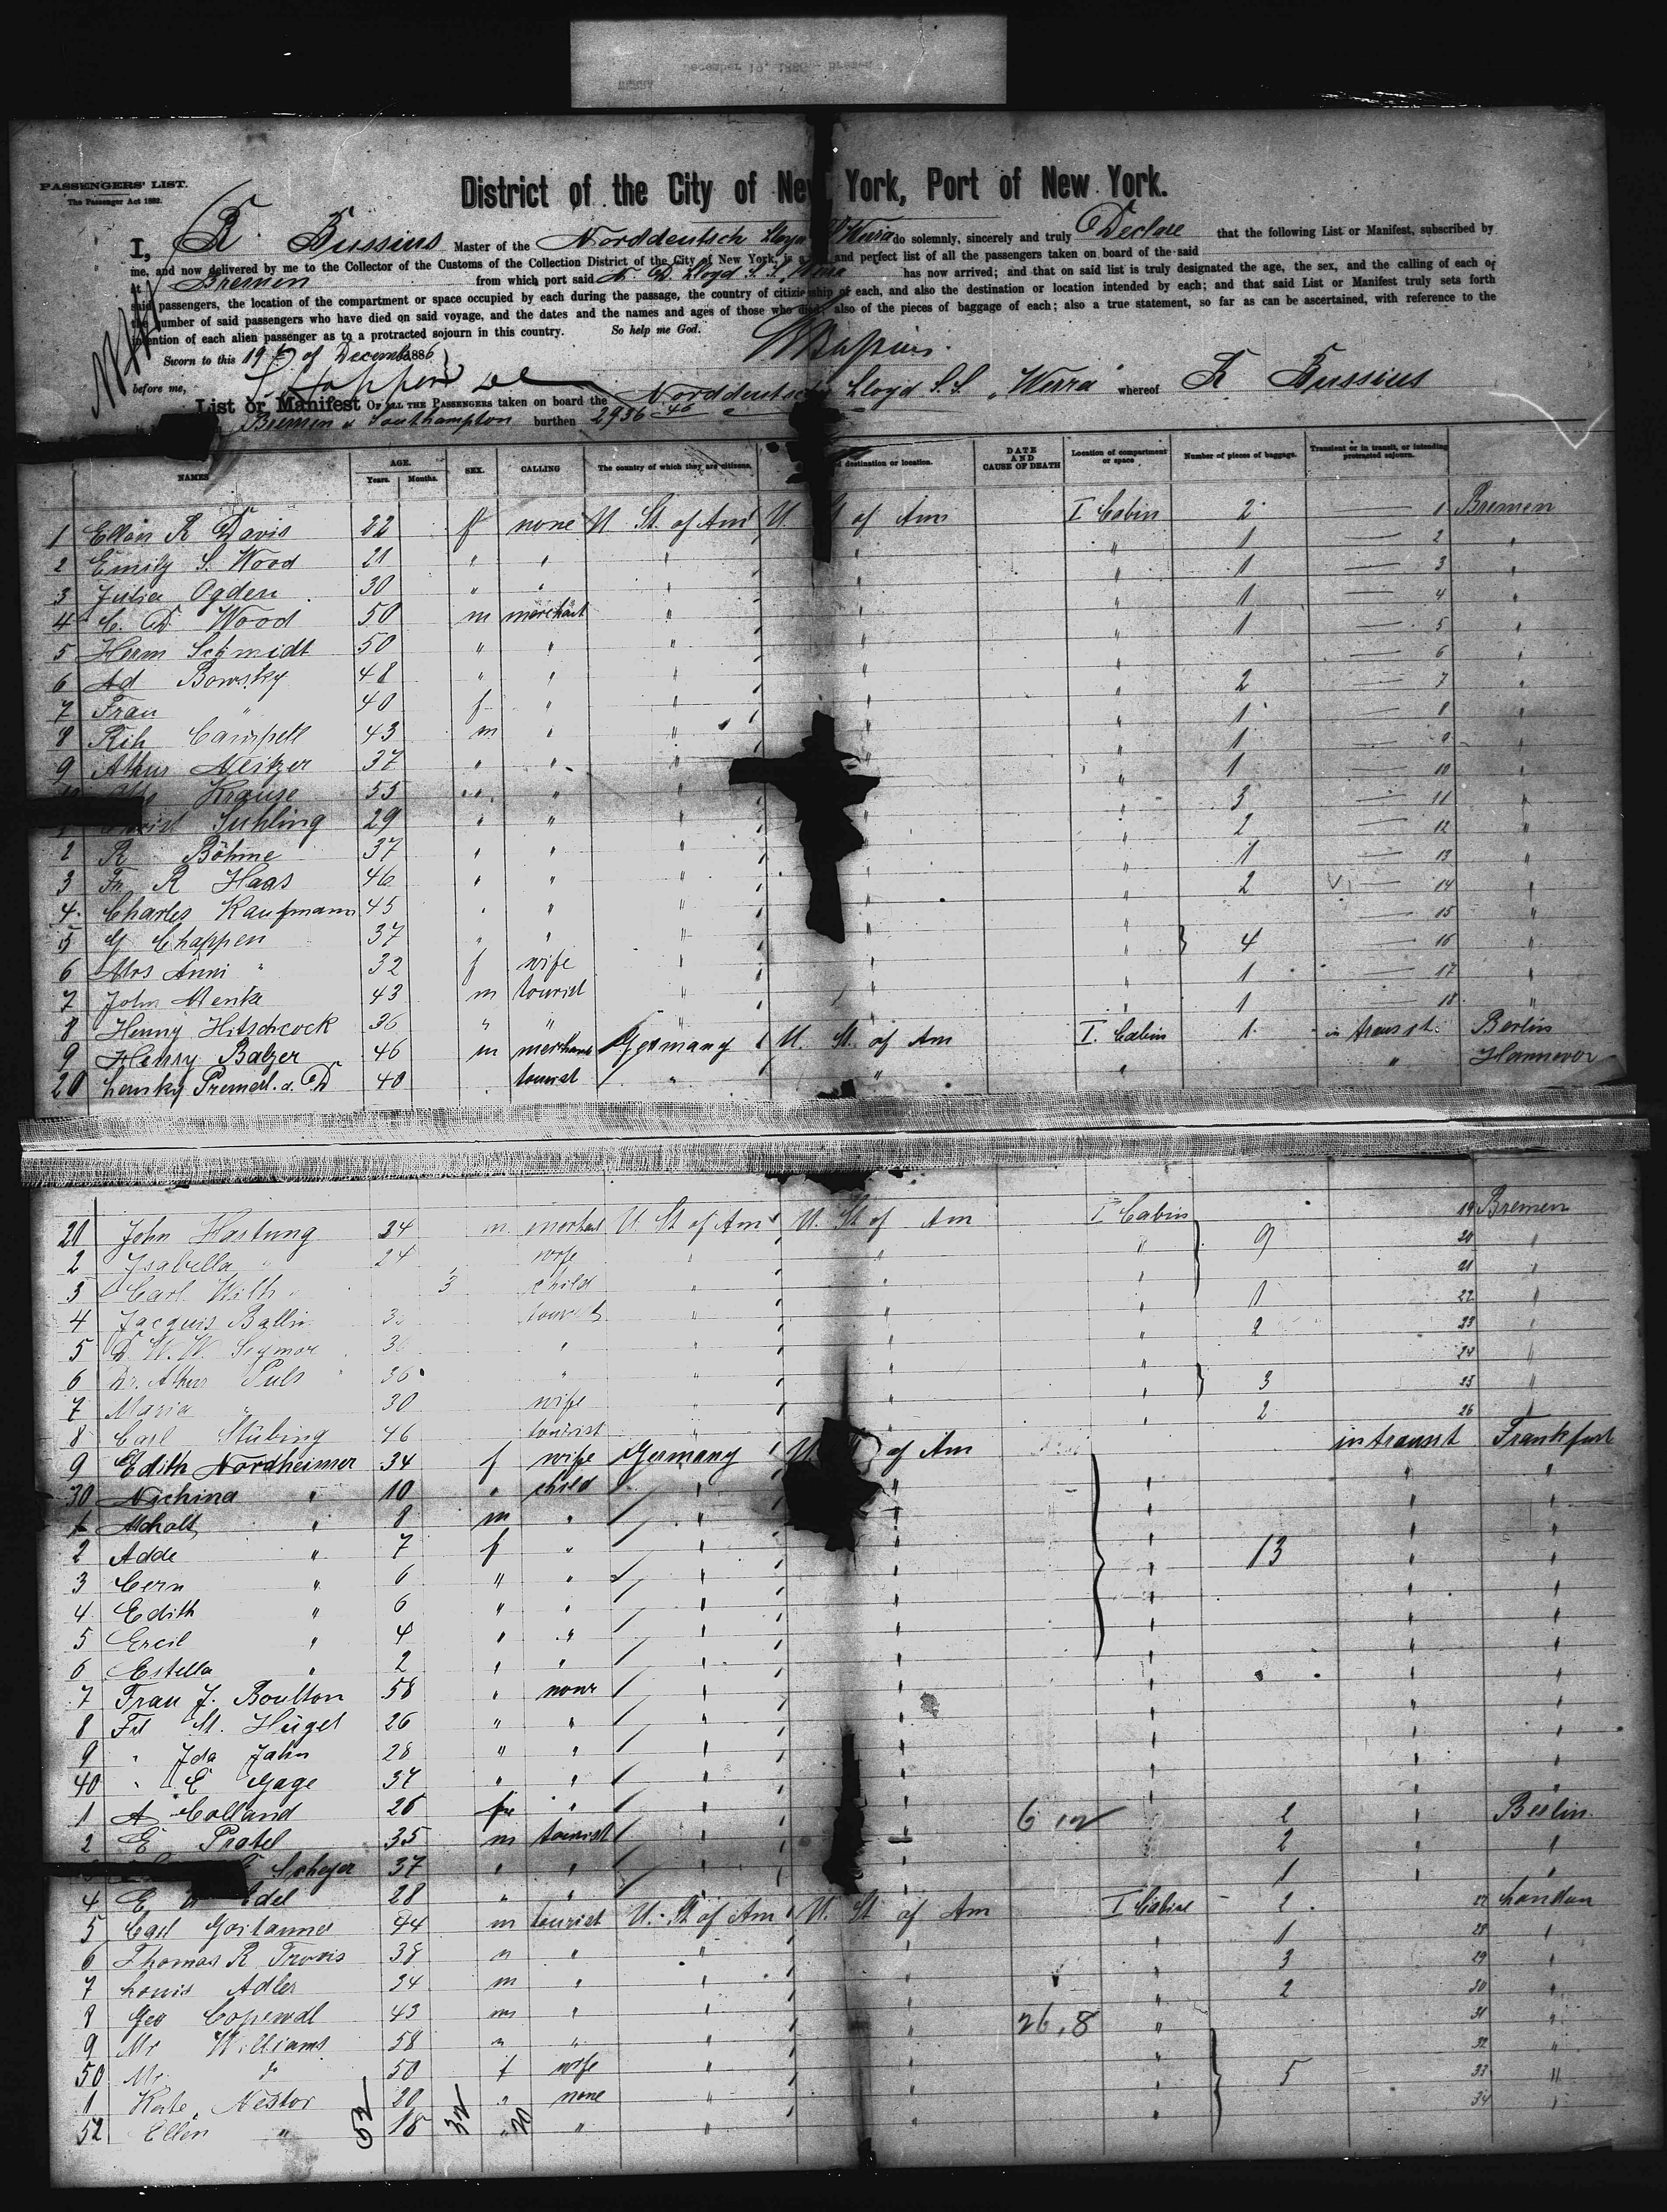 December 19, 1886 - Bremen
WERRA
PASSENGERS' LIST.
The Passenger Act 1882.
District of the City of New York, Port of New York.
I, R. Bussius Master of the Norddeutsch Lloyd SS Werra do solemnly, sincerely and truly Declare that the following List or Manifest, subscribed by
me, and now delivered by me to the Collector of the Customs of the Collection District of the City of New York, is a and perfect list of all the passengers taken on board of the said
at Bremen from which port said N. D. Lloyd S. S. Werra has now arrived; and that on said list is truly designated the age, the sex, and the calling of each of
said passengers, the location of the compartment or space occupied by each during the passage, the country of citizenship of each, and also the destination or location intended by each; and that said List or Manifest truly sets forth
the number of said passengers who have died on said voyage, and the dates and the names and ages of those who died; also of the pieces of baggage of each; also a true statement, so far as can be ascertained, with reference to the
intention of each alien passenger as to a protracted sojourn in this country. So help me God.
Sworn to this 19th of December 1886 Bussius.
before me,
List or Manifest OF ALL THE PASSENGERS taken on board the Norddeutscher Lloyd S.S. "Werra" whereof R Bussius
Bremen & Southampton burthen 2936 46
NAMES AGE. Years. Months. SEX. CALLING The country of which they are citizens. destination or location. DATE AND CAUSE OF DEATH Location of compartment or space Number of pieces of baggage. Transient or in transit, or intending protracted sojourn.
1 Ellen R Davis 22 f none U. St. of Am U. St of Am I Cabin 2 — 1 Bremen
2 Emily S. Wood 21 " " " " " 1 — 2 "
3 Julia Ogden 30 " " " " " 1 — 3 "
4 C. D. Wood 50 m merchant " " " 1 — 4 "
5 Herm Schmidt 50 " " " " " 1 — 5 "
6 Ad Bowsky 48 " " " " — 6 "
7 Frau " 40 f " " " " 2 — 7 "
8 Rih Campell 43 m " " " " 1 — 8 "
9 Athur Meitzer 37 " " " " " 1 — 9 "
Krause 55 " " " " " 1 — 10 "
Suhling 29 " " " " " 3 — 11 "
2 R Böhme 37 " " " " " 2 — 12 "
3 Fr. R Haas 46 " " " " " 1 — 13 "
4 Charles Kaufmann 45 " " " " " 2 — 14 "
5 G Chappen 37 " " " " — 15 "
6 Mrs Anni " 32 f wife " " " 4 — 16 "
7 John Menke 43 m tourist " " " 1 — 17 "
8 Henny Hitschcock 36 " " " " 1 — 18 "
9 Henry Balzer 46 m merchant Germany U. St. of Am I. Cabin 1 in transit. Berlin
20 Lansky Premerl. a. D 40 tourist " " " " Hannover
21 John Hartung 34 m merchant U. St of Am U. St of Am I Cabin 19 Bremen
2 Isabella " 24 wife " " " 9 20 "
3 Carl Wilh " 3 child " " " 21 "
4 Jacques Ballin tourist " " " 1 22 "
5 D W. W. Seymor 36 " " " " 2 23 "
6 Dr. Athur Puls 36 " " " " 24 "
7 Maria " 30 wife " " " 3 25 "
8 Carl Stübing 46 tourist " " " 2 26 "
9 Edith Nordheimer 34 f wife Germany U. St of Am in transit Frankfurt
30 Nichina " 10 " child " " " " "
1 " 8 m " " " " " "
2 Adde " 7 f " " " " 13 " "
3 Cern " 6 " " " " " " "
4 Edith " 6 " " " " " " "
5 Ercil " 4 " " " " " " "
6 Estella " 2 " " " " " "
7 Frau J. Boulton 58 " none " " " " "
8 Frl M. Hügel 26 " " " " " " "
9 " Ida Jahn 28 " " " " " " "
40 " E Gage 37 " " " " " " "
1 A Colland 26 " " " " " "
2 E Pratel 35 m tourist " " 6 12 1 " Berlin
Scheyer 37 " " " " 2 " "
4 E Edel 28 " " " " 1 " "
5 Carl Gostanner 44 m tourist U. St of Am U. St of Am I Cabin 1 27 London
6 Thomas R Travis 38 " " " " " 1 28 "
7 Louis Adler 34 m " " " " 3 29 "
8 Geo Copewal 43 m " " " " 2 30 "
9 Mr Williams 58 " " " " 26.8 " 31 "
50 Mr. " 50 f wife " " " 32 "
1 Kate Nestor 20 " none " " " 5 33 "
52 Ellen " 18 " " " " " 34 "
52 32 20